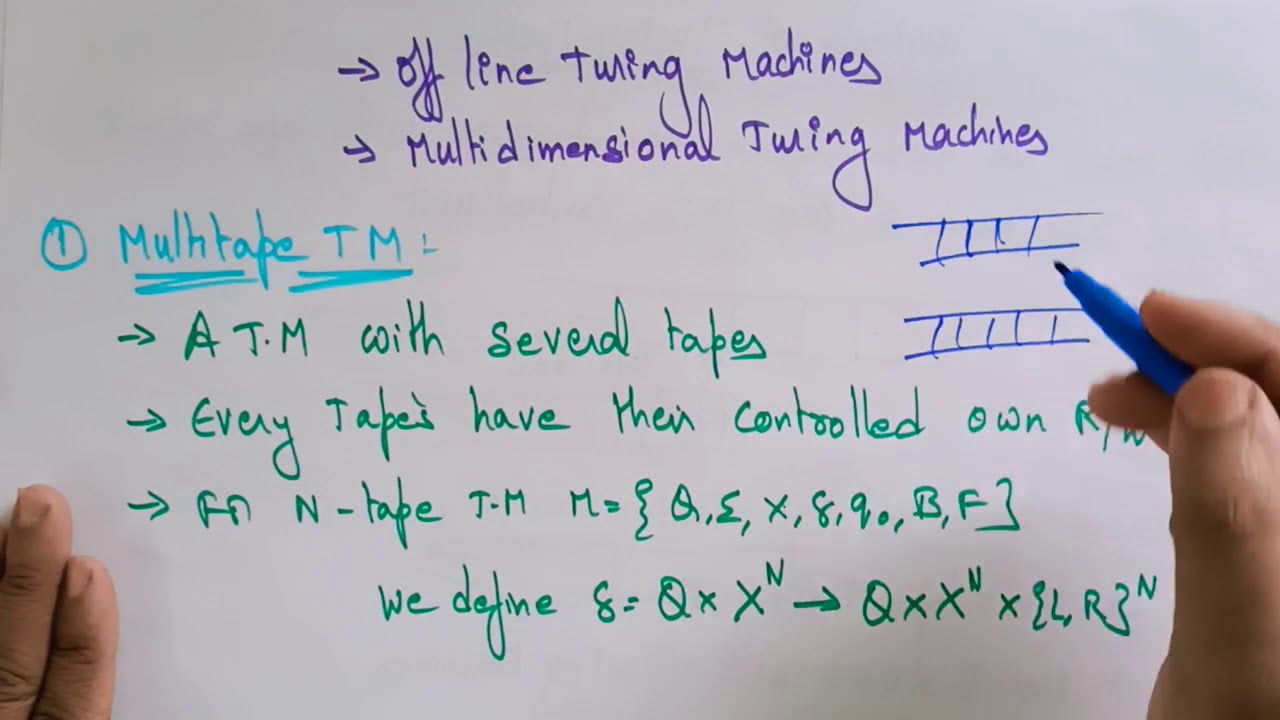 → Off line Turing Machines
→ Multidimensional Turing Machines
① Multitape TM :
→ A T.M with several tapes
→ Every Tape's have their controlled own R/W
→ For N-tape T.M M={Q,Σ,X,δ,q₀,B,F}
We define δ= Q×X^N → Q×X^N×{L,R}^N